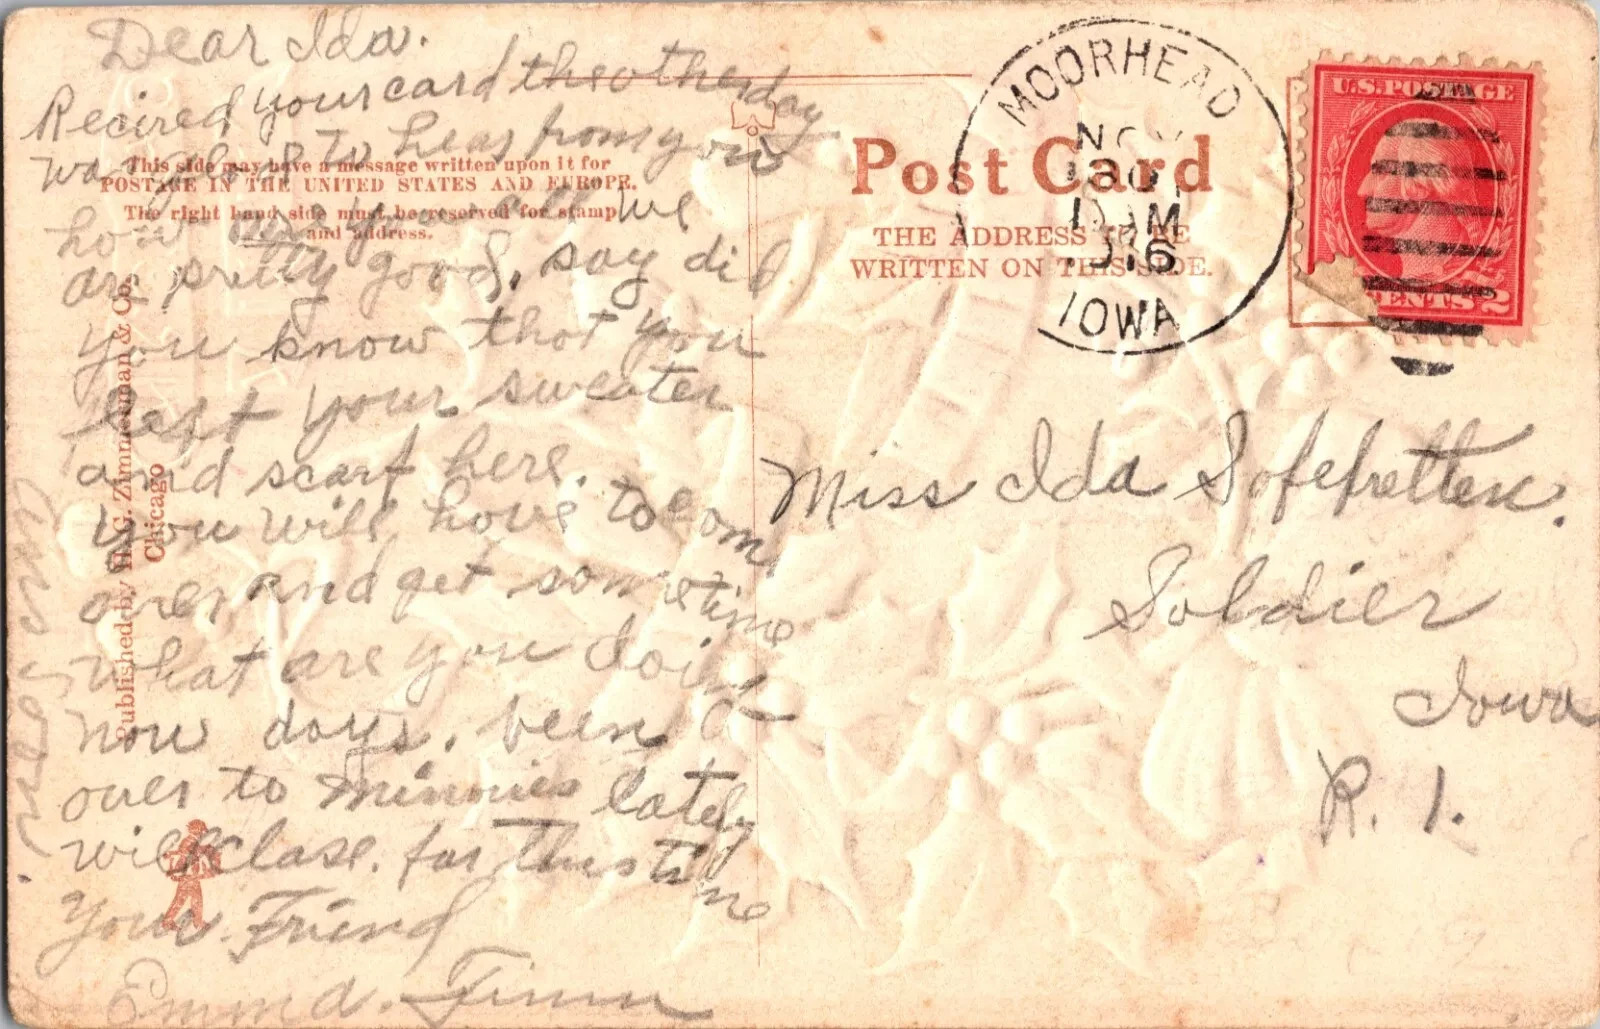 Dear Ida.
Recired your card the other day
was glad to hear from you
how are you all We
are pretty good, say did
you know that you
left your sweater
and scarf here.
you will have to com
over and get sometime
what are you doing
now days. been
over to minnies lately
will close. for this time
your. Friend
Emma. Finn
answer soon
This side may have a message written upon it for
POSTAGE IN THE UNITED STATES AND EUROPE.
The right hand side must be reserved for stamp
and address.
Published by H.G. Zimmerman & Co.
Chicago
Post Card
THE ADDRESS TO BE
WRITTEN ON THIS SIDE.
MOORHEAD
NOV
AM
1916
IOWA
U.S. POSTAGE
2 CENTS 2
Miss Ida
Soldier
Iowa
R. 1.